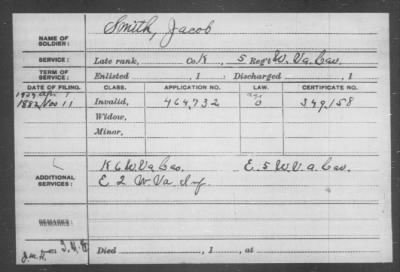 NAME OF SOLDIER: Smith, Jacob
SERVICE: Late rank, Co. K, 5 Reg't W. Va. Cav.
TERM OF SERVICE: Enlisted , 1 : Discharged , 1
DATE OF FILING. CLASS. APPLICATION NO. LAW. CERTIFICATE NO.
1882 Nov 11 Invalid, 464,732 349,158
Widow,
Minor,
ADDITIONAL SERVICES: K 6 W. Va Cav. E. 5 W. V. a. Cav.
E 2 W Va Inf
REMARKS:
Died , 1 , at